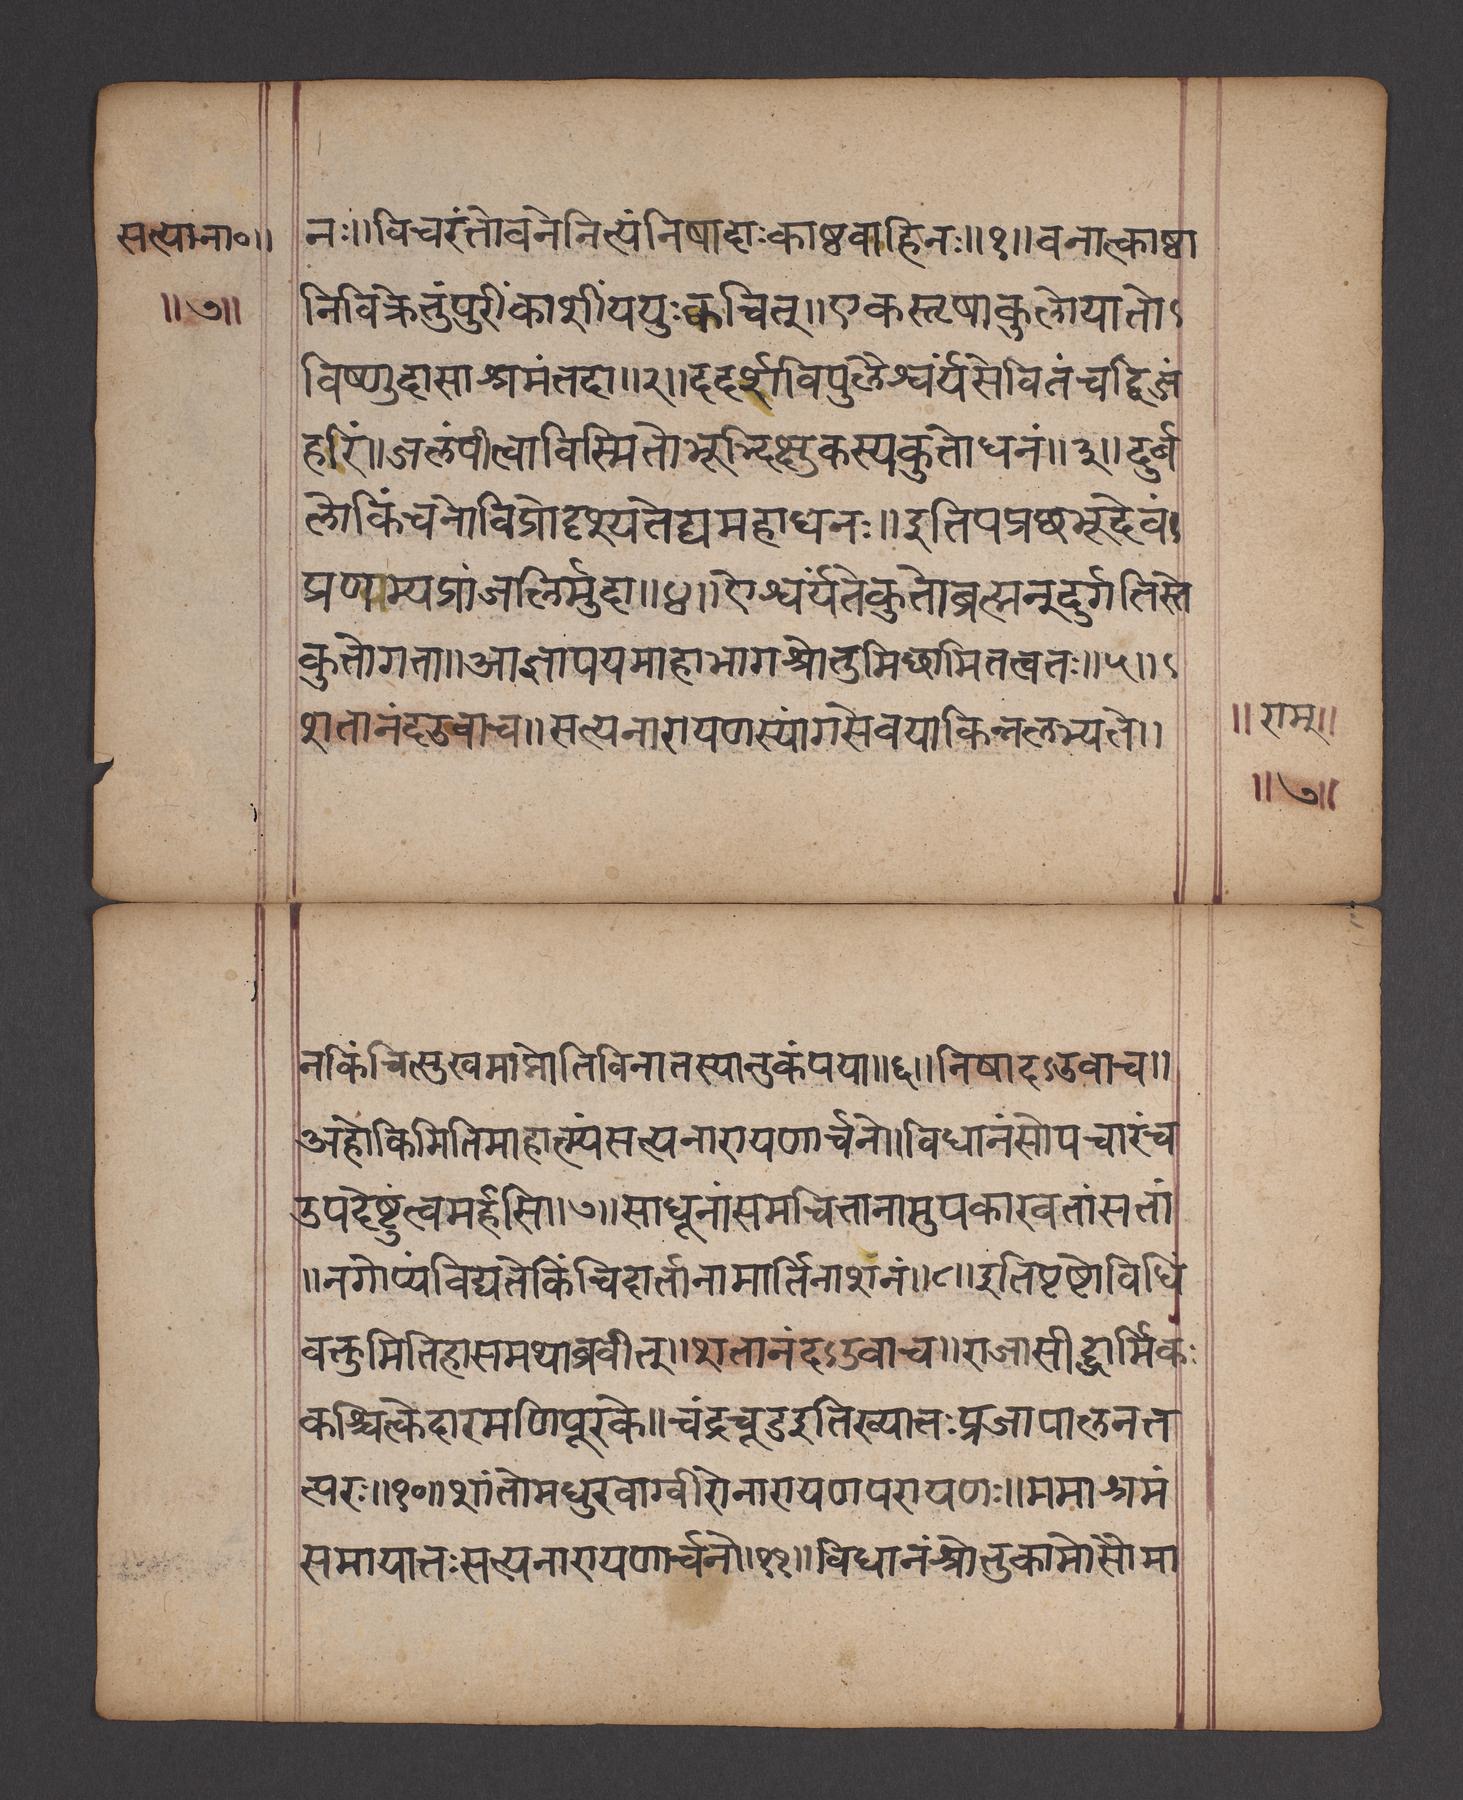 सत्याना०॥
॥७॥
नः॥विचरंतोवनेनित्यंनिषादाःकाष्ठवाहिनः॥१॥वनात्काष्ठा
निविक्रेतुंपुरींकाशींययुःक्वचित्॥एकस्तृषाकुलोयातोऽ
विष्णुदासाश्रमंतदा॥२॥ददर्शविपुलैश्वर्यंसेवितंचद्विजं
हरिं॥जलंपीत्वाविस्मितोभूद्भिक्षुकस्यकुतोधनं॥३॥दुर्ब
लोकिंचनोविप्रोदृश्यतेद्यमहाधनः॥इतिपप्रछभूदेवंऽ
प्रणम्यप्रांजलिर्मुदा॥४॥ऐश्वर्यंतेकुतोब्रह्मन्दुर्गतिस्ते
कुतोगता॥आज्ञापयमाहाभागश्रोतुमिछामितत्वतः॥५॥ऽ
शतानंदउवाच॥सत्यनारायणस्यांगसेवयाकिन्नलभ्यते॥
॥राम॥
॥७॥
नकिंचित्सुखमाप्नोतिविनातस्यानुकंपया॥६॥निषादऽउवाच॥
अहोकिमितिमाहात्म्यंसत्यनारायणार्चने॥विधानंसोपचारंच
उपदेष्टुंत्वमर्हसि॥७॥साधूनांसमचित्तानामुपकारवतांसतां
॥नगोप्यंविद्यतेकिंचिदार्तानामार्तिनाशनं॥८॥इतिपृष्टोविधिं
वक्तुमितिहासमथाब्रवीत्॥शतानंदऽउवाच॥राजासीद्धार्मिकः
कश्चित्केदारमणिपूरके॥चंद्रचूडइतिख्यातःप्रजापालनत
त्परः॥१०॥शांतोमधुरवाग्वीरोनारायणपरायणः॥ममाश्रमं
समायातःसत्यनारायणार्चने॥११॥विधानंश्रोतुकामोसोमा